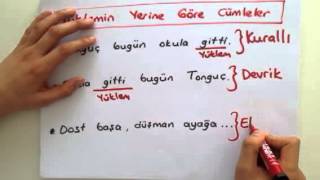 Yüklemin Yerine Göre Cümleler
bugün okula gitti. } Kurallı
Yüklem
gitti bugün Tonguç. } Devrik
Yüklem
* Dost başa, düşman ayağa ... }